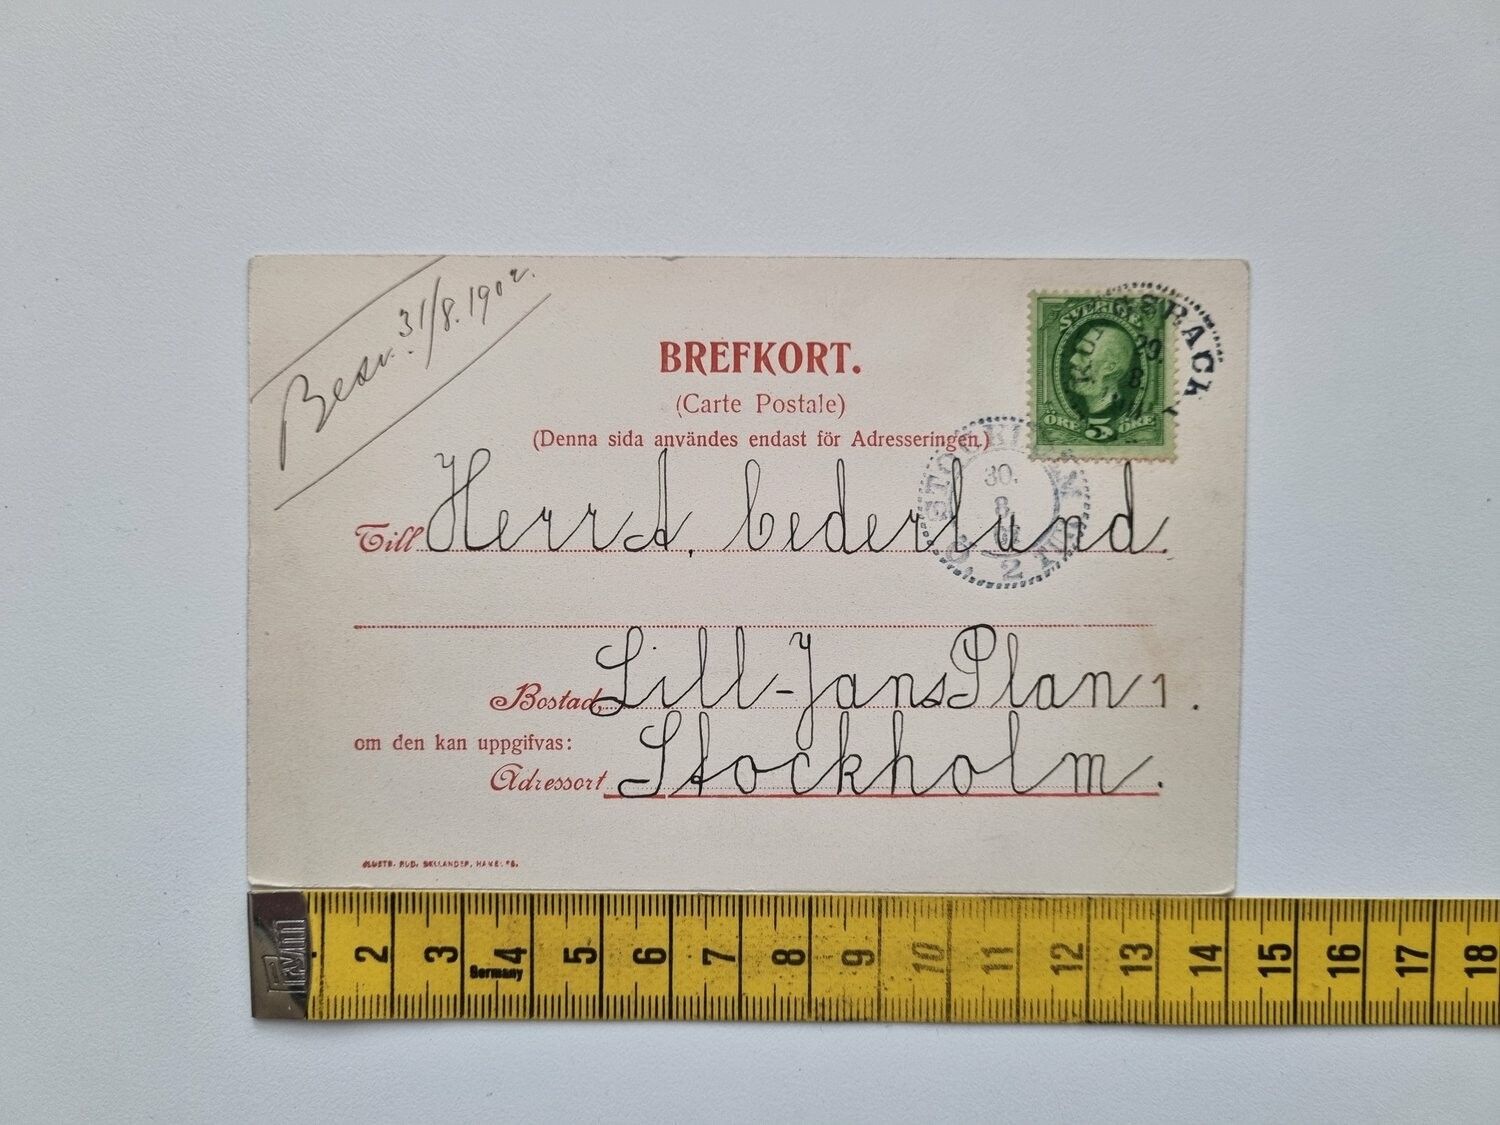 Besv. 31/8. 1902.
BREFKORT.
(Carte Postale)
(Denna sida användes endast för Adresseringen.)
SVERIGE
ÖRE 5 ÖRE
30.
8
2 TUR
Till Herr A. Cederlund.
Bostad, Lill-Jans Plan 1.
om den kan uppgifvas:
Adressort Stockholm.
prym
Germany
2 3 4 5 6 7 8 9 10 11 12 13 14 15 16 17 18